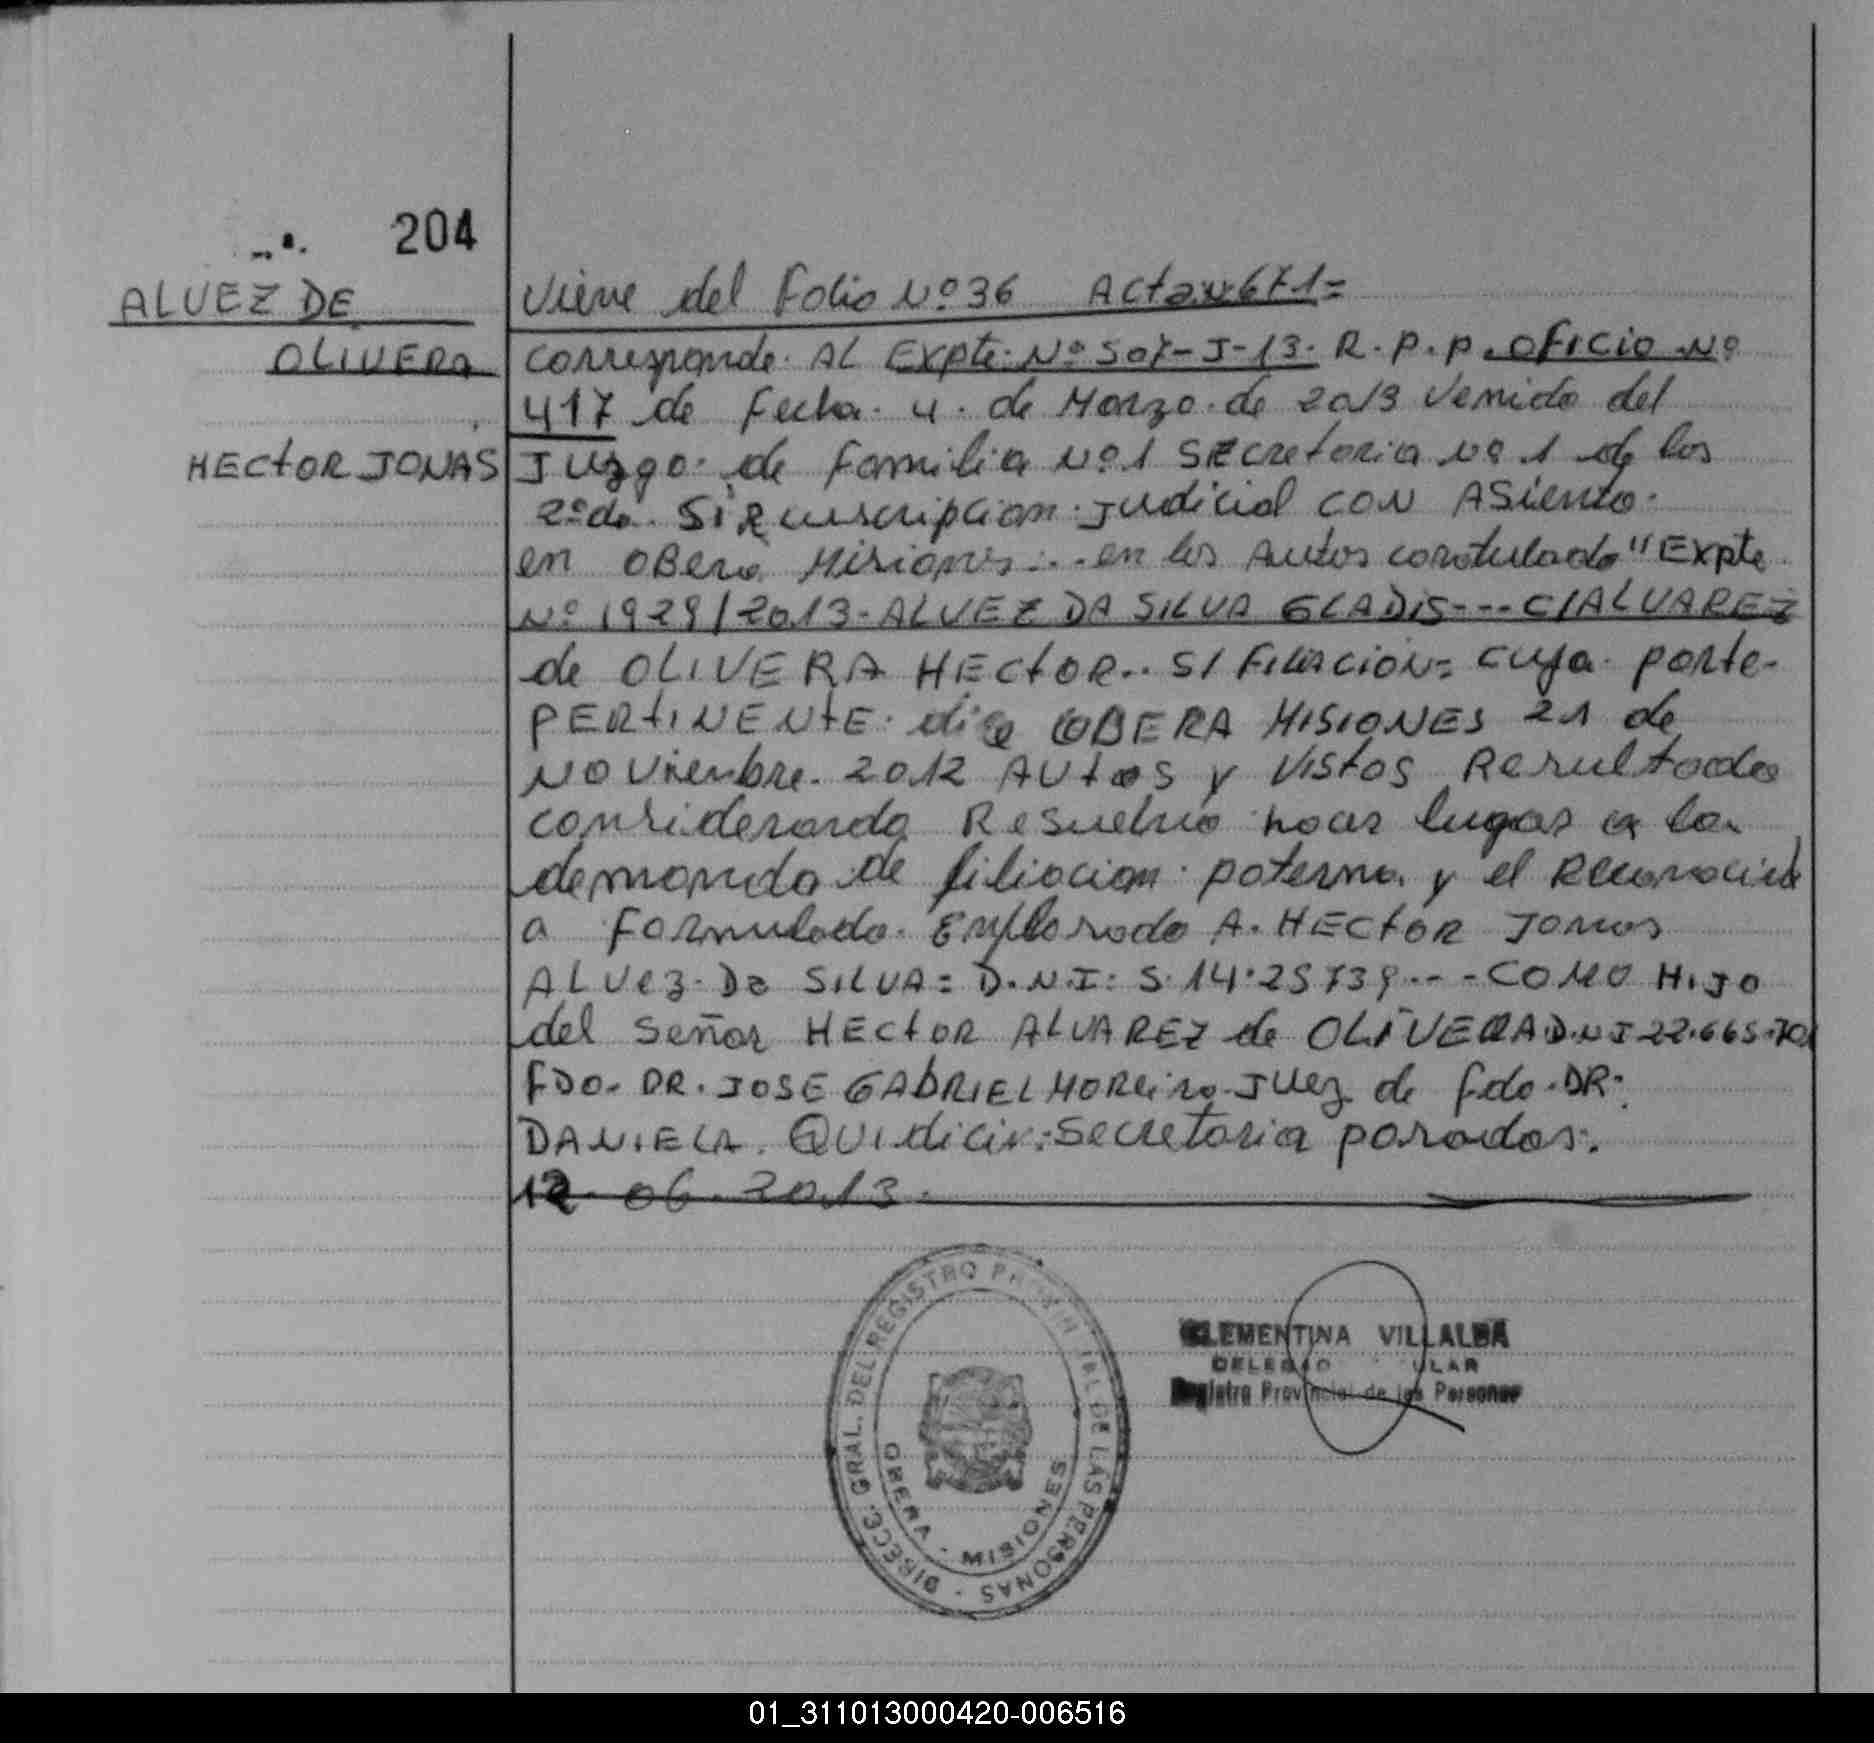 204
ALVEZ DE
OLIVERA
HECtOR JONAS
Viene del Folio Nº 36 Acta Nº 671=
corresponde. AL Expte. Nº 507-J-13. R.P.P. OFICIO Nº
417 de fecha. 4. de Marzo. de 2013 Venido del
Juzgo. de Familia Nº1 SEcretaria Nº 1 de los
2º da. SiRcunscripcion. Judicial CON ASiento.
en OBera Misiones... en los Autos caratulado "Expte
Nº 1929/2013-ALVEZ DA SILVA GLADiS---C/ALVAREZ
de OLIVERA HECtOR.. S/ FiliACION= cuya parte-
PERtiNENtE. dice OBERA MISIONES 21 de
NOViembre. 2012 AUtos y Vistos Resultado
considerando Resuelvo hacer lugar a la
demanda de filiacion paterna. y el
a formulada. A. HECtOR Jonas
ALVez. Da SILVA= D.N.I: S.14.25739...-COMO HIJO
del Señor HECtOR ALVAREZ de OLIVERA D.N.I 22.665.701
FDO. DR. JOSE GABRIEL MOReira. JUez de fdo. DR.
DANIELA. Secretaria posadas.
12. 06. 2013.
DIRECC. GRAL. DEL REGISTRO PROVINCIAL DE LAS PERSONAS
OBERA - MISIONES
CLEMENTINA VILLALBA
Registro Provincial de las Personas
01_311013000420-006516